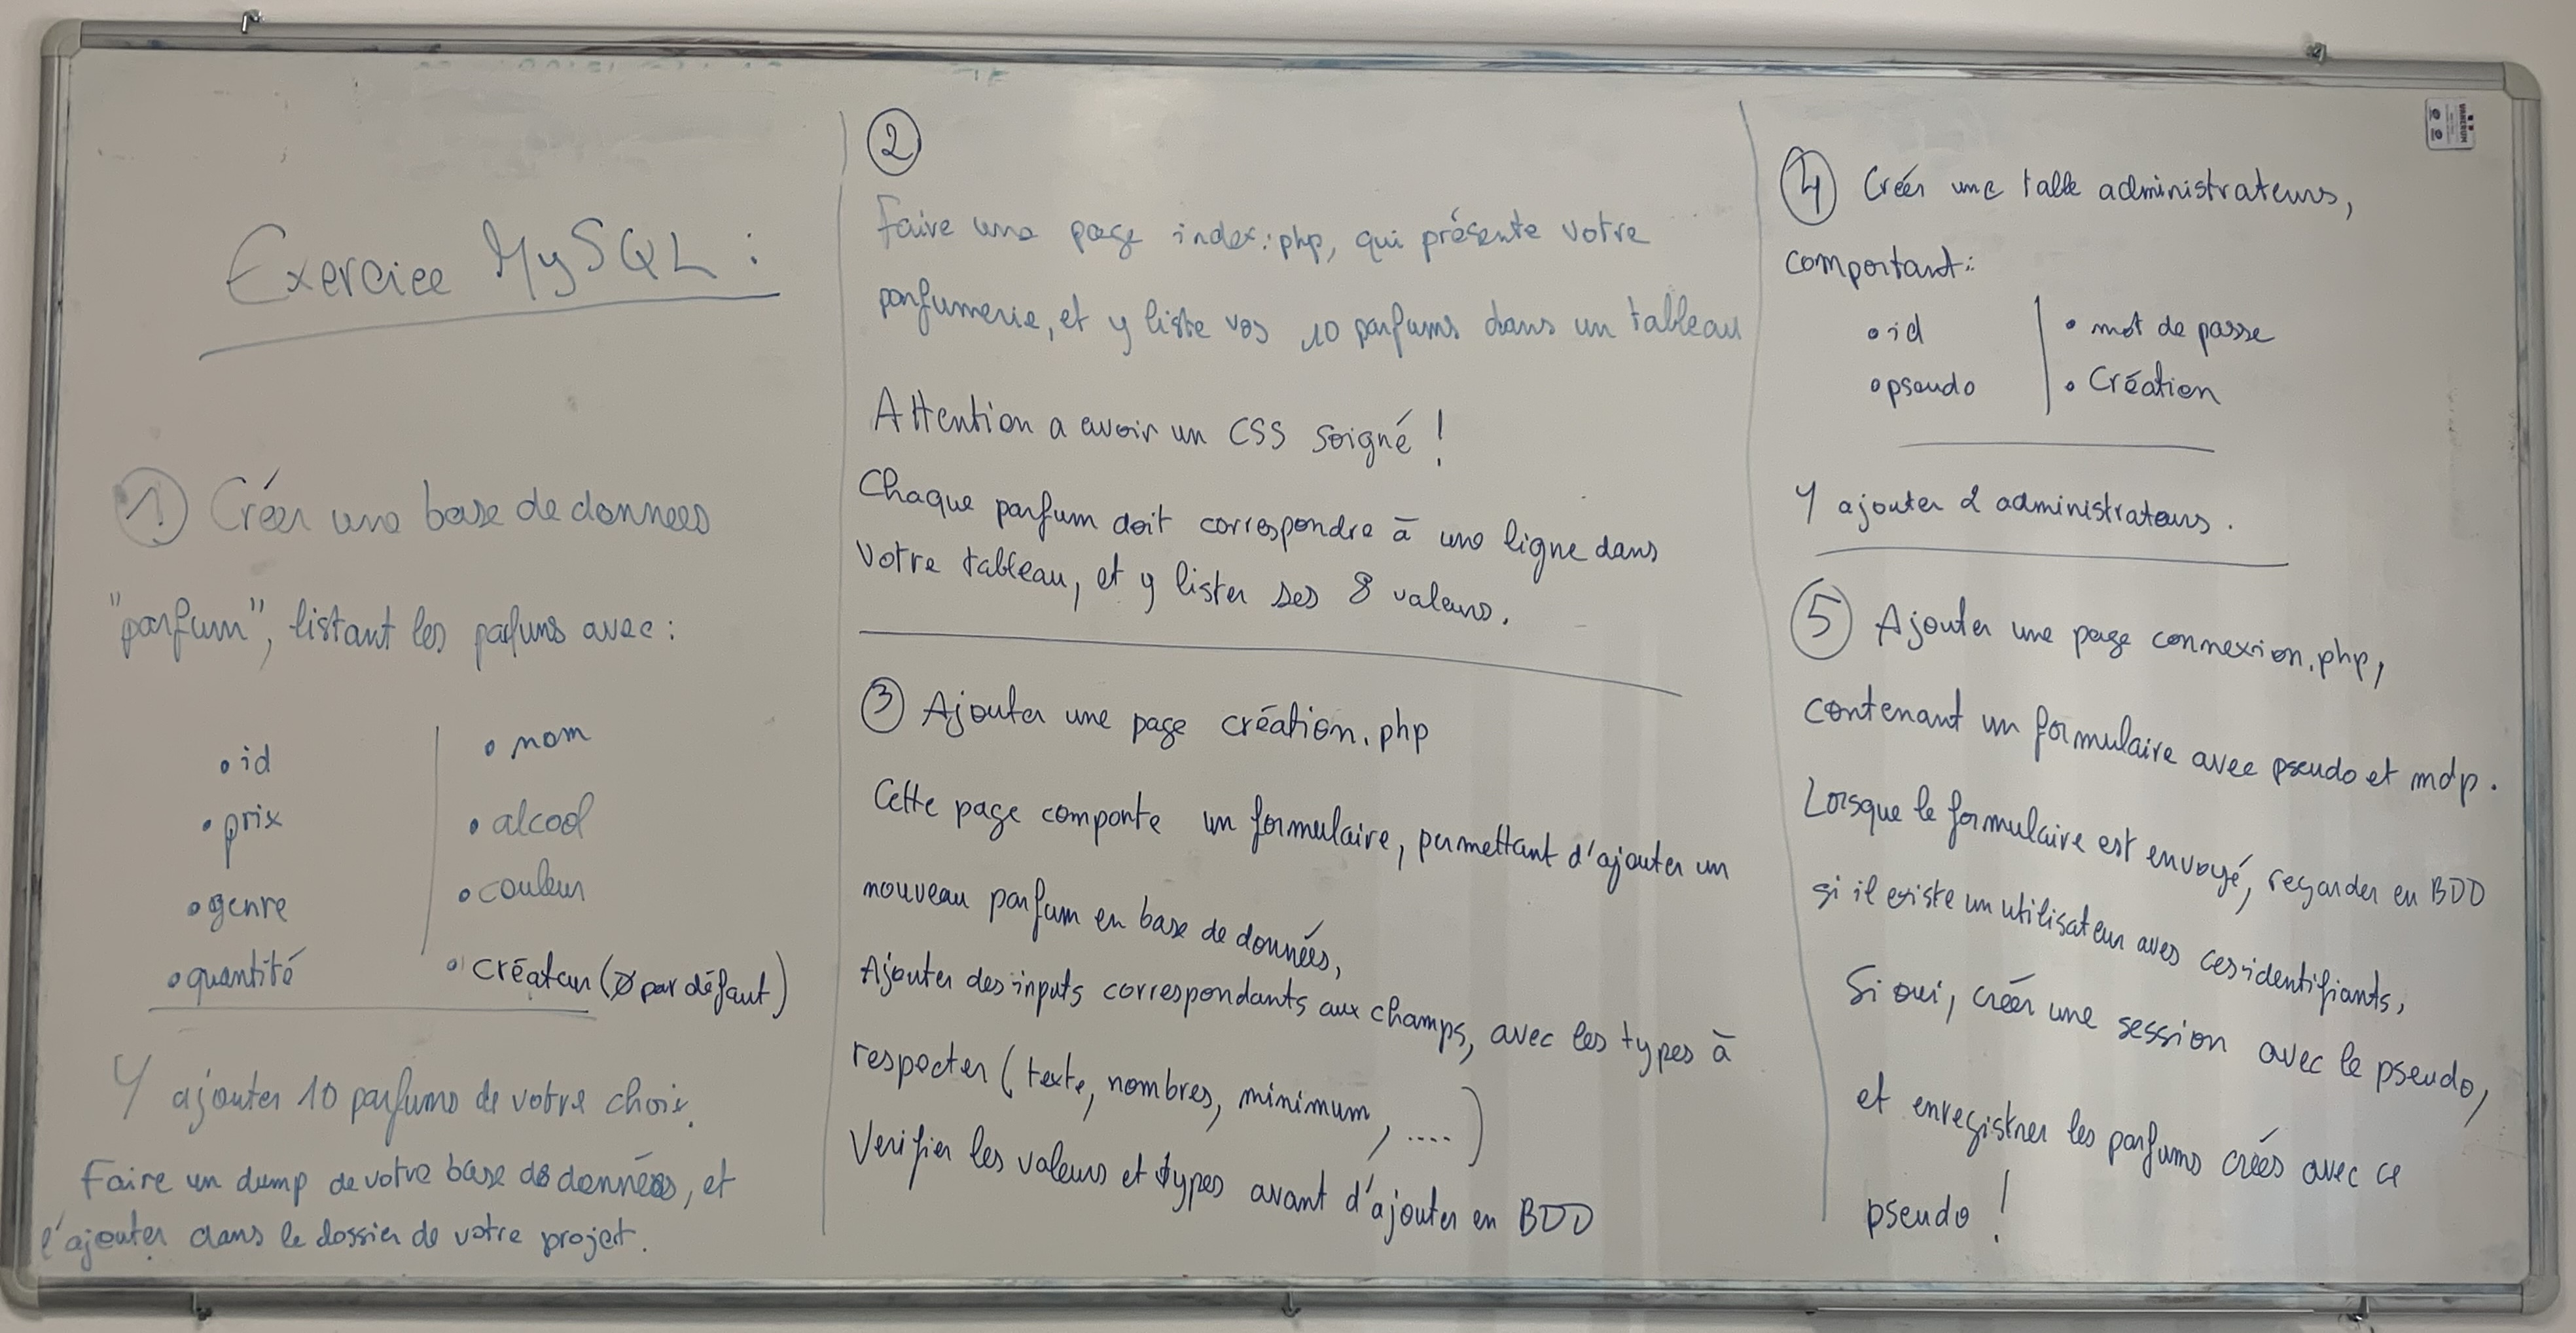 Exercice MySQL :
① Créer une base de données
"parfum", listant les parfums avec :
• id
• prix
• genre
• quantité
• nom
• alcool
• couleur
• créateur (Ø par défaut)
Y ajouter 10 parfums de votre choix.
Faire un dump de votre base de données, et
l'ajouter dans le dossier de votre projet.
②
Faire une page index.php, qui présente votre
parfumerie, et y liste vos 10 parfums dans un tableau
Attention a avoir un CSS soigné !
Chaque parfum doit correspondre à une ligne dans
votre tableau, et y lister ses 8 valeurs.
③ Ajouter une page création.php
Cette page comporte un formulaire, permettant d'ajouter un
nouveau parfum en base de données,
Ajouter des inputs correspondants aux champs, avec les types à
respecter (texte, nombres, minimum, ....)
Verifier les valeurs et types avant d'ajouter en BDD
④ Créer une table administrateurs,
comportant :
• id
• pseudo
• mot de passe
• Création
Y ajouter 2 administrateurs.
⑤ Ajouter une page connexion.php,
contenant un formulaire avec pseudo et mdp.
Lorsque le formulaire est envoyé, regarder en BDD
si il existe un utilisateur avec ces identifiants,
Si oui, créer une session avec le pseudo,
et enregistrer les parfums créés avec ce
pseudo !